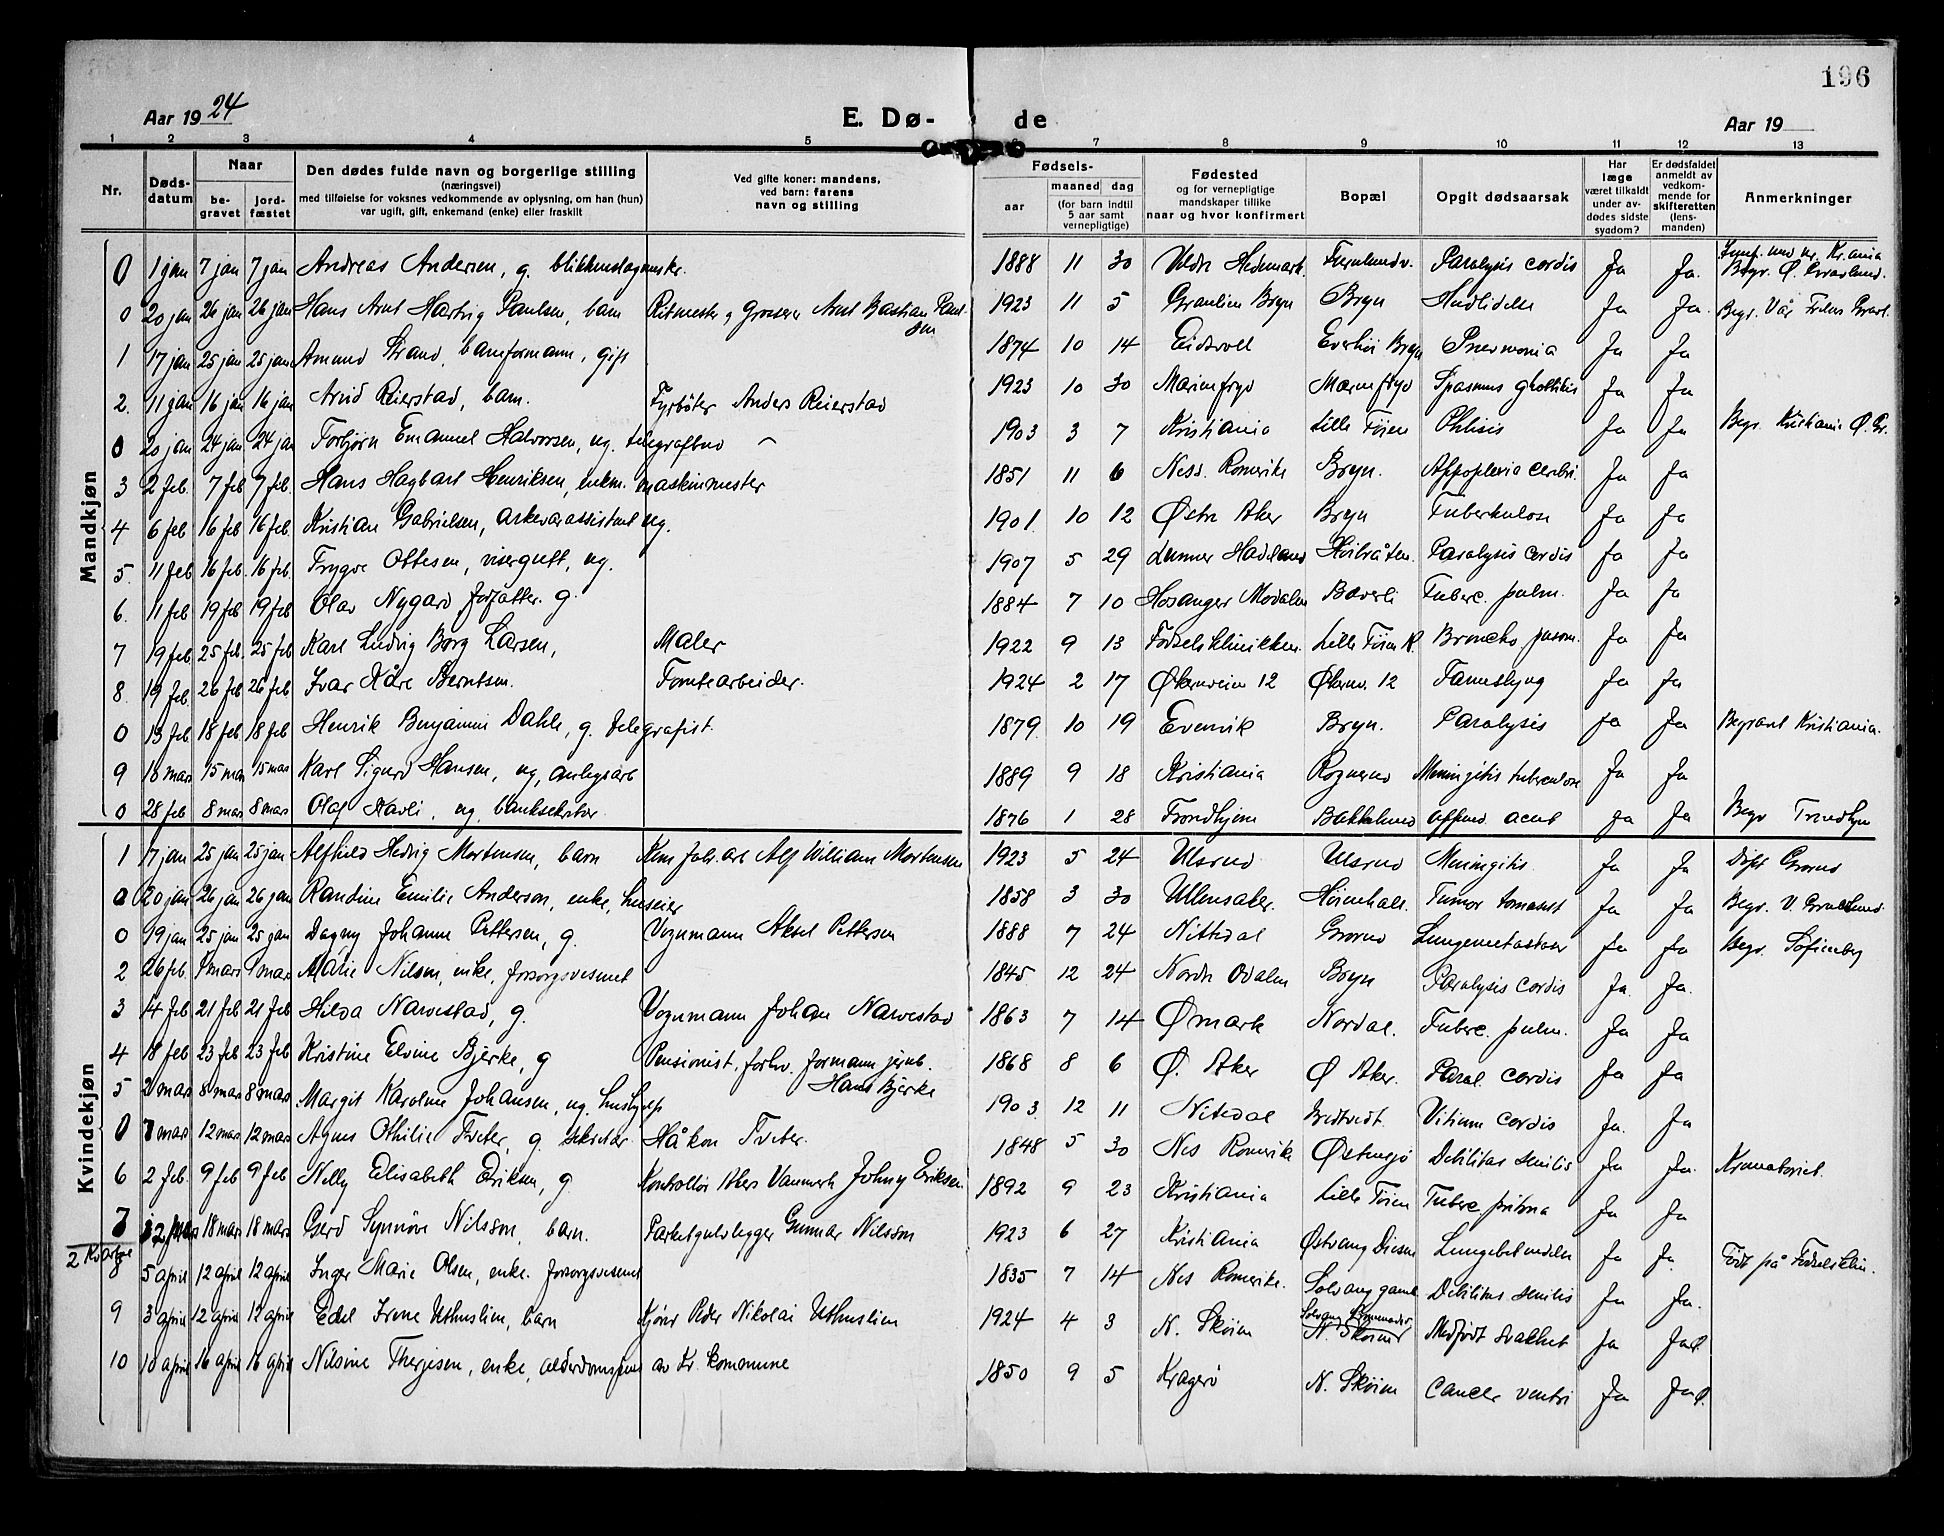 196
Aar 1924 E. Dø- de Aar 19
1 2 3 4 5 7 8 9 10 11 12 13
Nr. Døds-datum Naar begravet jordfæstet Den dødes fulde navn og borgerlige stilling (næringsvei) med tilføielse for voksnes vedkommende av oplysning, om han (hun) var ugift, gift, enkemand (enke) eller fraskilt Ved gifte koner: mandens, ved barn: farens navn og stilling Fødsels- aar maaned dag (for barn indtil 5 aar samt vernepligtige) Fødested og for vernepligtige mandskaper tillike naar og hvor konfirmert Bopæl Opgit dødsaarsak Har læge været tilkaldt under avdødes sidste sygdom? Er dødsfaldet anmeldt av vedkommende for skifteretten (lensmanden) Anmerkninger
Mandkjøn
0 1 jan 7 jan 7 jan Andreas Andersen, g. 1888 11 30 Paralysis cordis Ja Ja. Kr.ania Begr. Ø.
0 20 jan 26 jan 26 jan Hans Arnt Hartvig Paulsen, barn Ritmester og Grosserer Arnt Bastian Paulsen 1923 11 5 Bryn Bryn Ja Ja. Begr. Vår Frelsers
1 17 jan 25 jan 25 jan Amund Strand, baneformann, gift 1874 10 14 Eidsvoll Bryn Pnevmonia Ja Ja
2. 11 jan 16 jan 16 jan Arvid Reierstad, barn. Fyrbøter Anders Reierstad 1923 10 30 Marienfryd Marienfryd Spasmus glottidis Ja Ja
0 20 jan 24 jan 24 jan Torbjørn Emanuel Halvorsen, ug. telegrafbud 1903 3 7 Kristiania Lille Tøien Phtisis Ja Ja Begr. Kristiania Ø. Gr.
3 2 feb. 7 feb 7 feb. Hans Hagbart Henriksen, enkm. maskinmester 1851 11 6 Ness. Romerike Bryn. Appoplexia cerebri. Ja Ja
4 6 feb 16 feb 16 feb. Kristian Gabrielsen, ug. 1901. 10 12 Østre Aker Bryn Tuberkulose Ja Ja
5. 11 feb 16 feb. 16 feb. Trygve Ottesen, visergutt, ug. 1907 5 29 Lunner Hadeland Høibråten Paralysis cordis Ja Ja
6. 11 feb 19 feb 19 feb Olav Nygard forfatter. g. 1884 7 10 Hosanger Modalen Tuberc. pulm. Ja Ja
7 19 feb 25 feb. 25 feb Karl Ludvig Borg Larsen, Maler 1922 9 13 Fødselsklinikken. Lille Tøien Ja Ja
8. 19 feb 26 feb 26 feb Ivar Kåre Berntsen. Tomtearbeider. 1924 2 17 Økernveien 12 Økernv. 12 Ja Ja
0 13 feb. 18 feb. 18 feb Henrik Benjamin Dahle, g. telegrafist. 1879. 10 19 Evenvik Bryn. Paralysis Ja Ja Begravet Kristiania.
9 10 mars 15 mars 15 mars Karl Sigurd Hansen, ug, anlegsarb 1889 9 18 Kristiania Rognerud Meningitis tuberculose Ja Ja
0 28 feb 8 mars 8 mars Olaf Havli, ug, banksekretær 1876 1 28 Trondhjem Bakkelund append. acut Ja Ja Begr Trondhjem
Kvindekjøn
1 17 jan 25 jan 25 jan Alfhild Hedvig Mortensen, barn Alf William Mortensen 1923 5 24 Ulsrud Ulsrud Meningitis. Ja Ja Døpt Grorud
0 20 jan 26 jan 26 jan Randine Emilie Anderson, enke, huseier 1858 3 30 Ullensaker. Tumor Ja Ja Begr. V.
0 19 jan 25 jan 25 jan Dagny Johanne Pettersen, g. Vognmann Aksel Pettersen 1888 7 24 Nittedal Grorud Lungemetastaser Ja Ja Begr. Sofienberg
2 26 feb. 1 mars 1 mars Marie Nilsen, enke, forsorgsvesenet 1845 12 24 Nordre Odalen Bryn Paralysis cordis Ja. Ja.
3 14 feb 21 feb 21 feb Hilda Narvestad, g. Vognmann Johan Narvestad 1863 7 14 Ømark Nordal. Tuberc. pulm. Ja Ja
4 18 feb 23 feb 23 feb Kristine Elvine Bjerke, g Pensionist, forhv. formann jernb. Hans Bjerke 1868 8 6 Ø. Aker Ø Aker. Paral. cordis Ja Ja
5 2 mars 8 mars 8 mars Margit Karoline Johansen, ug, hushjelp 1903 12 11 Nitedal Bredtvedt. Vitium cordis Ja. Ja
0 7 mars 12 mars 12 mars Agnes Othilie Tveter, g. sekretær Håkon Tveter. 1848 5 30 Nes Romerike Østensjø Debilitas senilis Ja Ja. Krematoriet.
6 2 feb. 9 feb 9 feb. Nelly Elisabeth Eriksen, g. Kontrollør Akers Vannverk Johny Eriksen 1892 9 23 Kristiania Lille Tøien Ja Ja
7 12 mars 18 mars 18 mars Gerd Synnøve Nilsson, barn. Parketgulvlegger Gunnar Nilsson 1923 6 27 Kristiania Østvang Disen Lungebetendelse Ja Ja. Født på Fødselsklin.
2 Kvartal
8 5 april 12 april 12 april Inger Marie Olsen, enke. forsorgsvesenet 1835 7 14 Nes Romerike. Solvang gaml. Debilitas senilis Ja Ja.
9 3 april 12 april 12 april Edel Irene Uthuslien, barn Kjører Peder Nikolai Uthuslien 1924 4 3 N. Skøien N. Skøien Medfødt svakhet Ja Ja
10 10 april 16 april 16 april Nilsine Therjesen, enke, alderdomspens av Kr. kommune 1850 9 5 Kragerø N. Skøien Cancer ventri Ja Ja